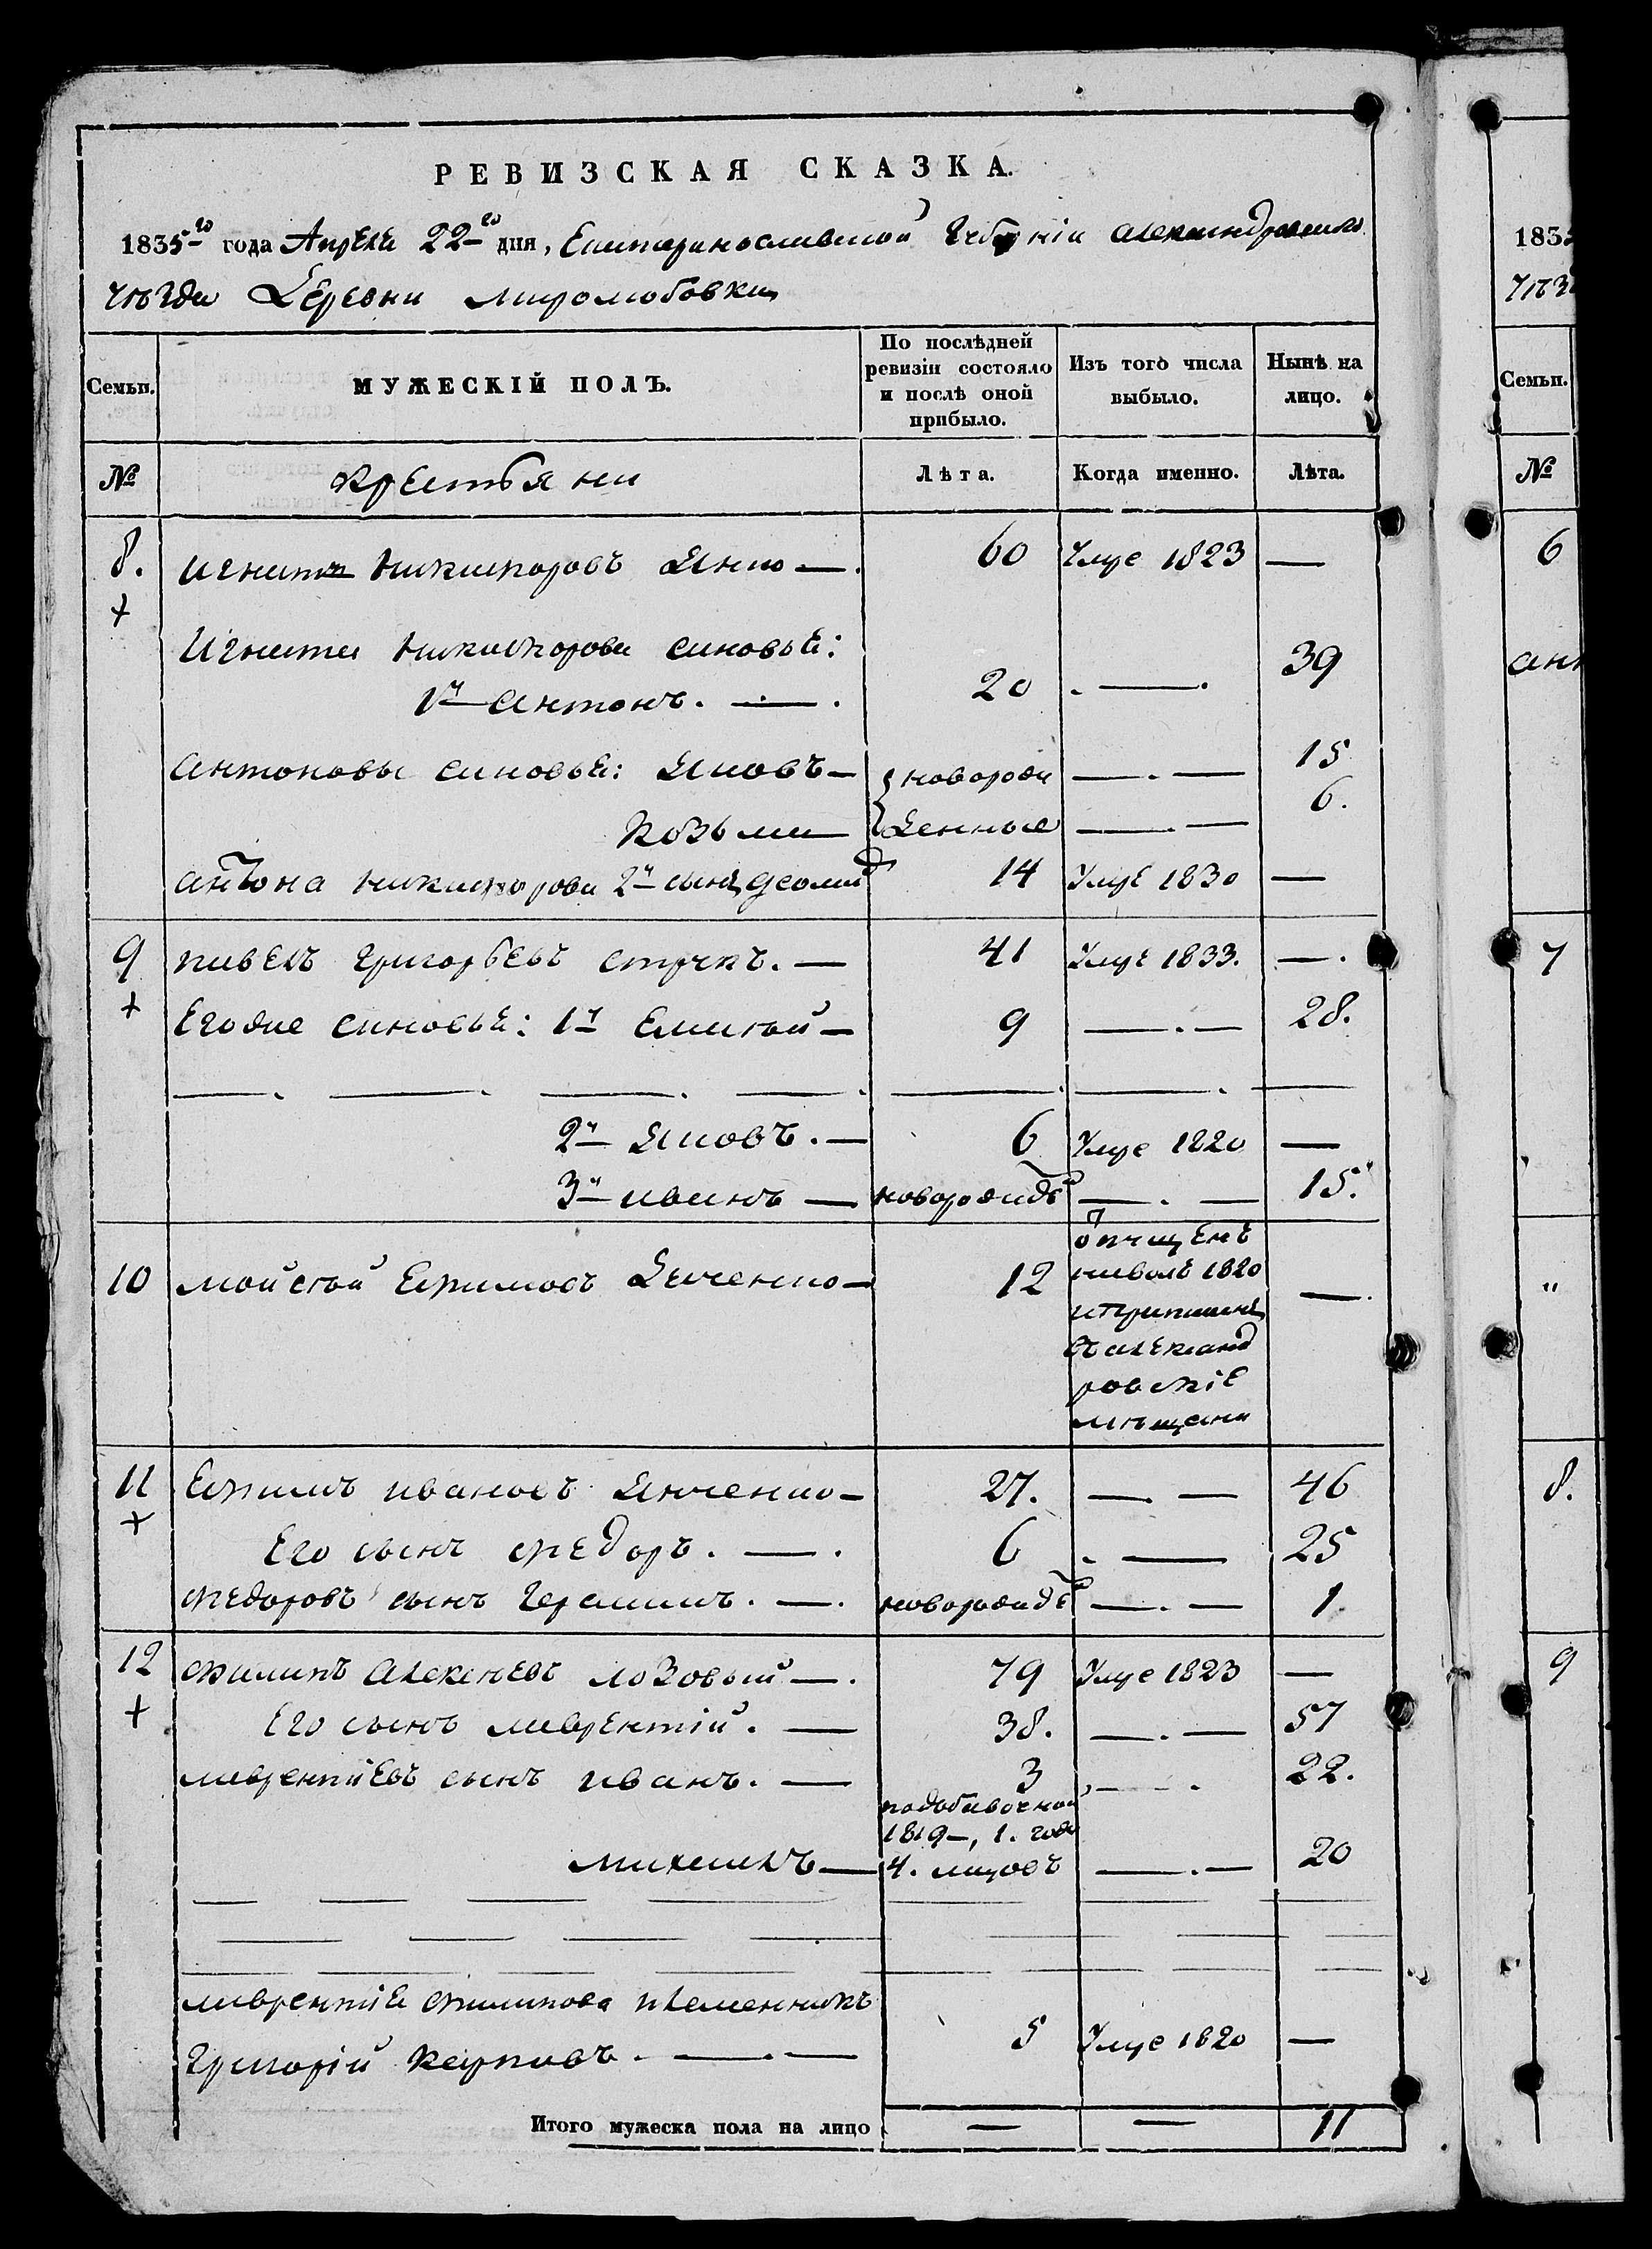 РЕВИЗСКАЯ СКАЗКА.
1835го года Апреля 22го дня, Екатеринославской Губерніи Александровскаго
уѣзда Деревни Миролюбовки
Семьи. МУЖЕСКІЙ ПОЛЪ. По послѣдней ревизіи состояло и послѣ оной прибыло. Изъ того числа выбыло. Нынѣ на лицо.
№ крестьяни Лѣта. Когда именно. Лѣта.
8. Игнатъ Никифоровъ 60 Умре 1823 —
+
Игната Никифорова синовья:
1й Антонъ. — 20 — 39
Антоновы синовья: Яковъ — новорож — 15
Козьма — денные — 6.
Антона Никифорова 2й сынъ 14 Умре 1830 —
9 Павелъ Григорьевъ Стукъ. — 41 Умре 1833. —
+ Егоже синовья: 1й Елисей — 9 — 28.
2й Яковъ. — 6 Умре 1820 —
3й Иванъ — новорожде — 15.
10 Мойсей Ефимовъ — 12 отпущенъ —
наволю 1820
иприписанъ
въ Александ
ровскіе
мѣщани
11 Ефимъ Ивановъ Янченко — 27. — 46
+ Его сынъ Федоръ. — 6 — 25
Федоровъ сынъ Герасимъ. — новорожде — 1
12 Филипъ Алексеевъ Лозовый — 79 Умре 1823 —
+ Его сынъ Лаврентій. — 38. — 57
Лаврентіевъ сынъ Иванъ. — 3 — 22.
подобавочной
1819, 1. года
Михаилъ — 4. мцовъ — 20
Лаврентія Филипова племенникъ
Григорій Карповъ. — 5 Умре 1820 —
Итого мужеска пола на лицо — — 11
183
уѣз
Семьи.
№
6
Ант
7
"
8.
9